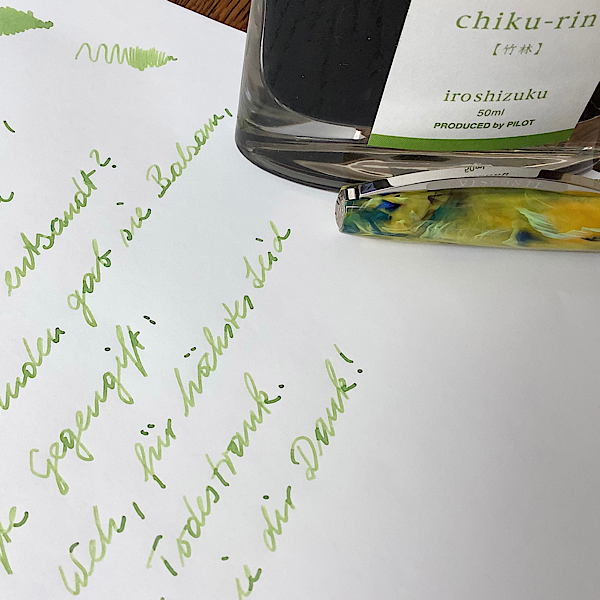 chiku-rin
【竹林】
iroshizuku
50ml
PRODUCED by PILOT
entsandt?
unden gab sie Balsam,
fte Gegengift:
Weh, für höchstes Leid
Todestrank.
dir Dank!